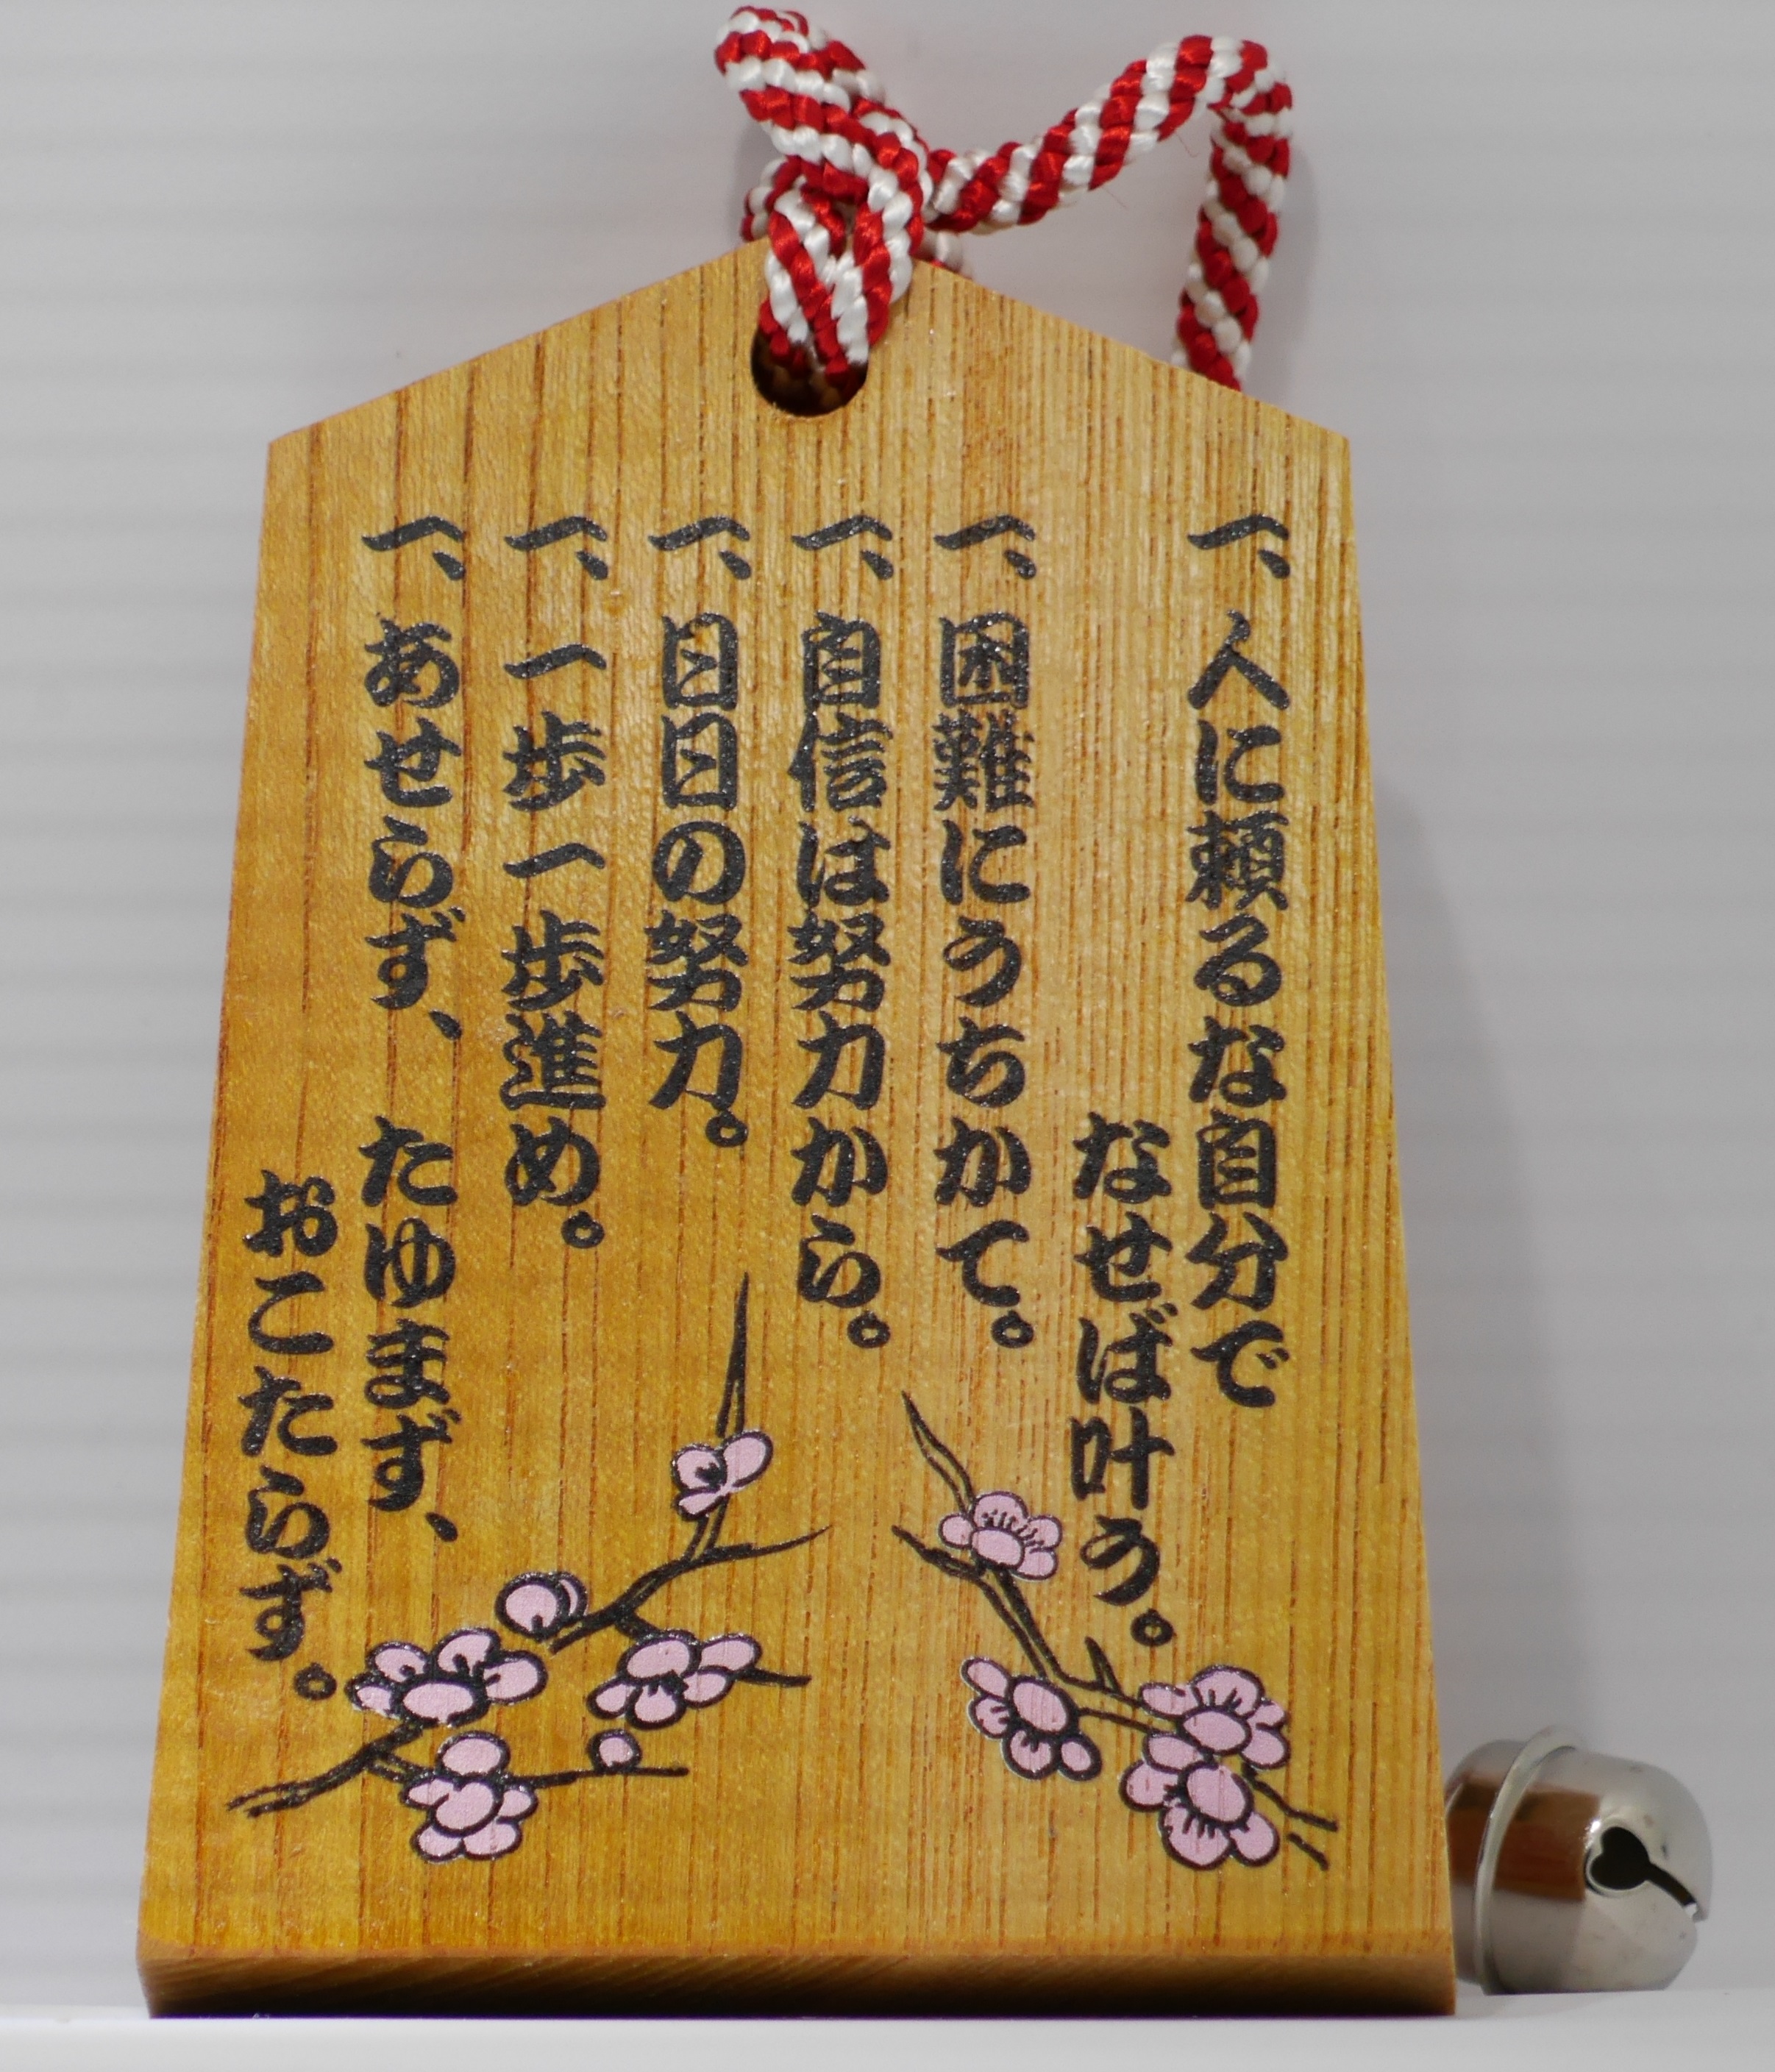 一、人に頼るな自分で
なせば叶う。
一、困難にうちかて。
一、自信は努力から。
一、日日の努力。
一、一歩一歩進め。
一、あせらず、たゆまず、
おこたらず。